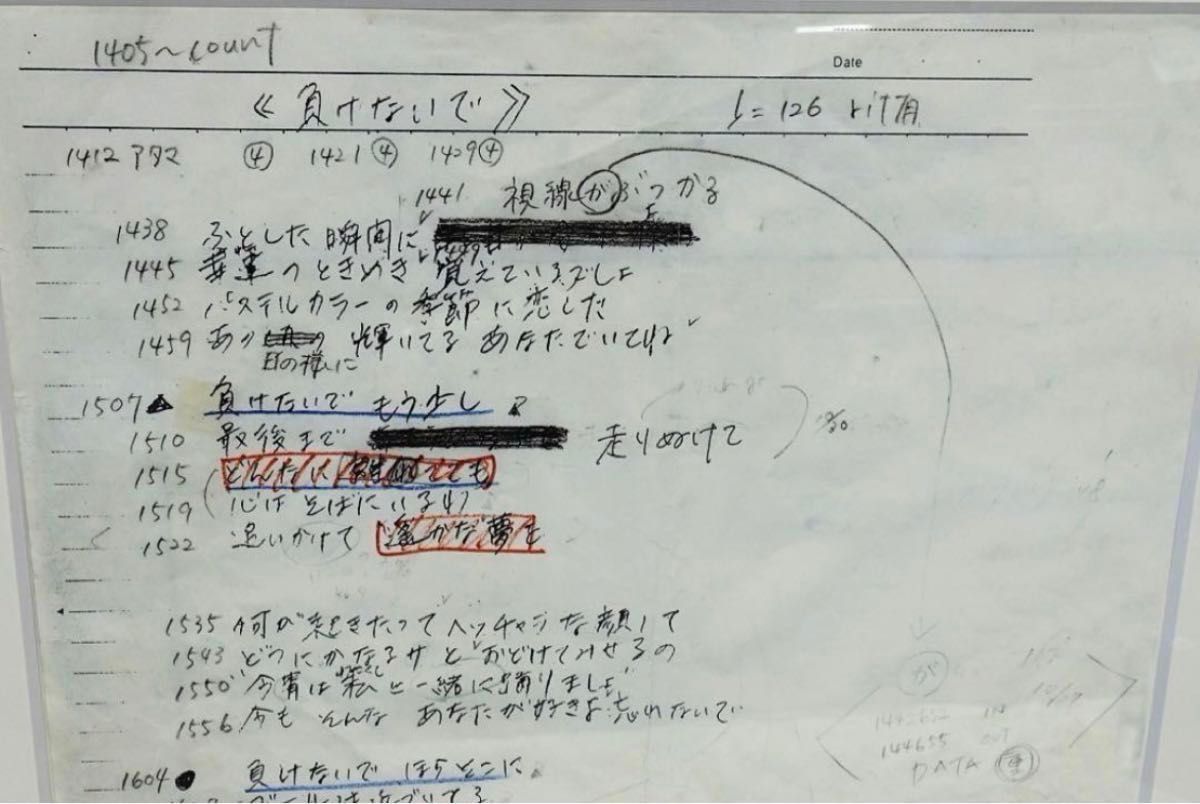 1405~count
Date
≪負けないで≫ ♩=126
1412 アタマ ④ 1421 ④ 1429 ④
1441 視線がぶつかる
1438 ふとした瞬間に
1445 幸運のときめき 覚えているでしょ
1452 パステルカラーの季節に恋した
1459 あの 輝いてる あなたでいてね
日の様に
1507 負けないで もう少し
1510 最後まで 走りぬけて
1515 どんなに ても
1519 心は そばにいるわ
1522 追いかけて 遥かな夢を
1535 何が起きたって ヘッチャラな顔して
1543 どうにかなるサと おどけてみせるの
1550 "今宵は私と一緒に踊りましょ"
1556 今も そんな あなたが好きよ 忘れないで
が
1442652 IN
144655 OUT
DATA
1604 負けないで ほらそこに
ゴールは近づいてる